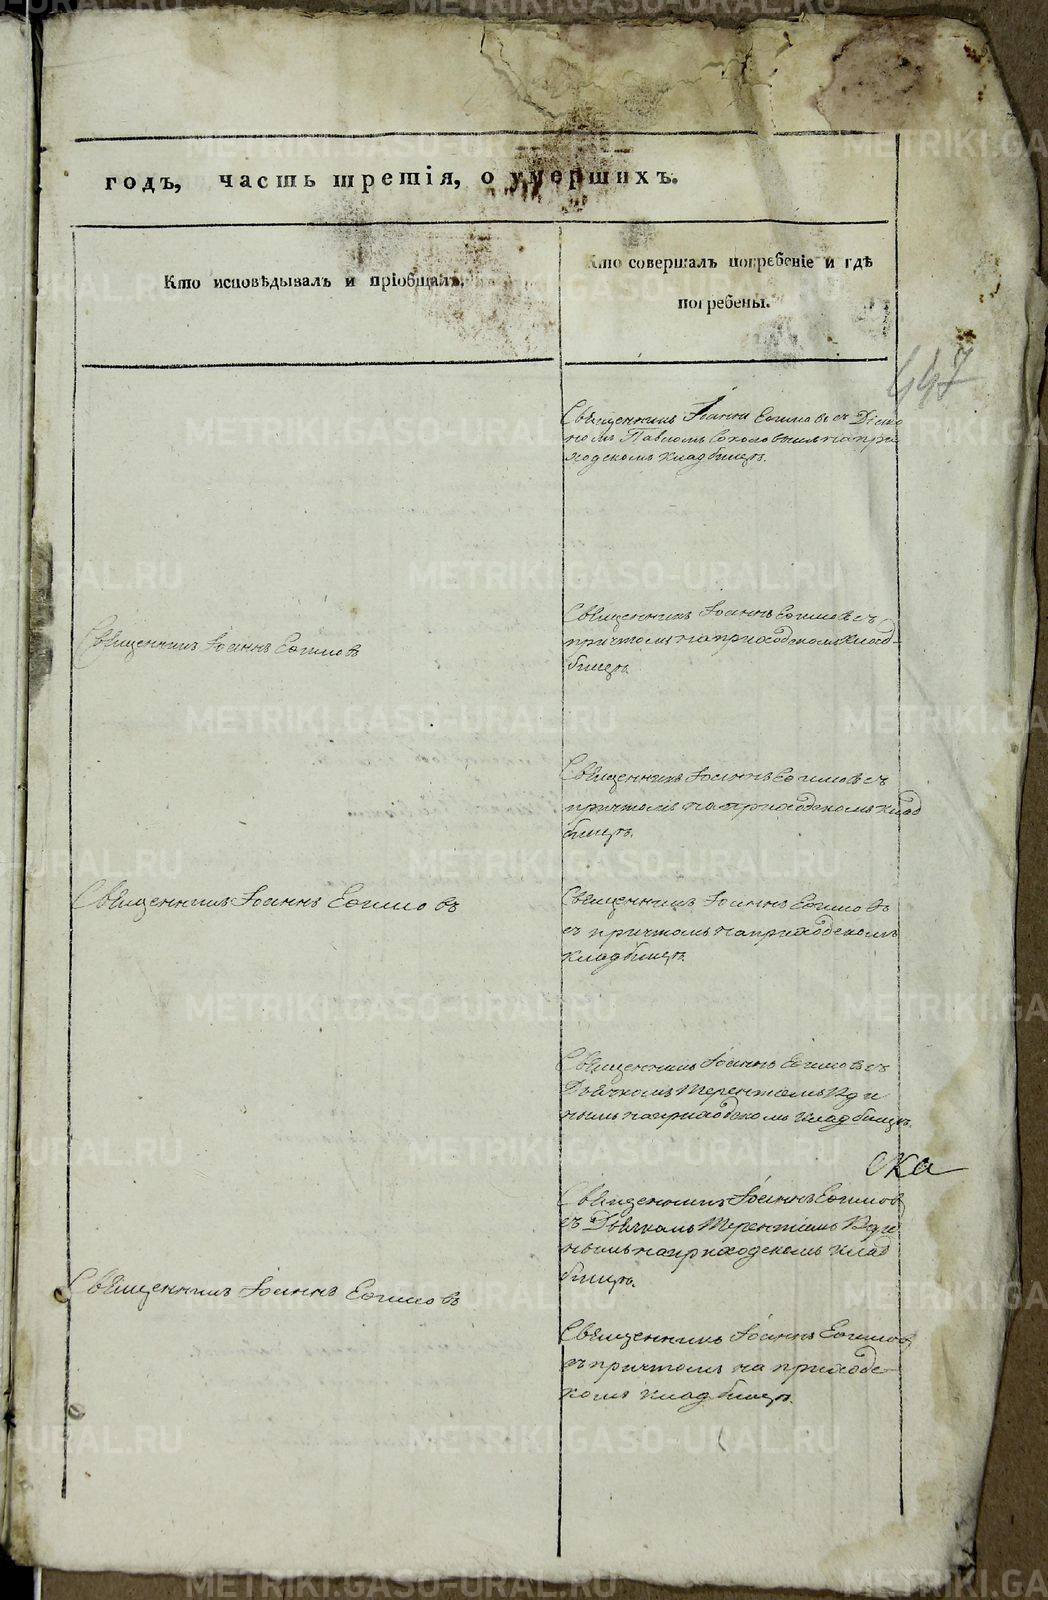 годъ, часть третія, о умершихъ.
Кто исповѣдывалъ и пріобщалъ.
Кто совершалъ погребеніе и гдѣ
погребены.
447
Священникъ Іоаннъ Еѳимовъ съ Діако
номъ Павломъ на при
ходскомъ кладбищѣ.
Священникъ Іоаннъ Еѳимовъ
Священникъ Іоаннъ Еѳимовъ съ
причтомъ на приходскомъ клад-
бищѣ.
Священникъ Іоаннъ Еѳимовъ съ
причтомъ на приходскомъ клад
бищѣ.
Священникъ Іоаннъ Еѳимовъ
Священникъ Іоаннъ Еѳимовъ
съ причтомъ на приходскомъ
кладбищѣ.
Священникъ Іоаннъ Еѳимовъ съ
Дьячкомъ Терентіемъ
на приходскомъ кладбищѣ.
Священникъ Іоаннъ Еѳимов
съ Дьячкомъ Терентіемъ
на приходскомъ клад
бищѣ.
Священникъ Іоаннъ Еѳимовъ
Священникъ Іоаннъ Еѳимов
съ причтомъ на приходс-
комъ кладбищѣ.
METRIKI.GASO-URAL.RU